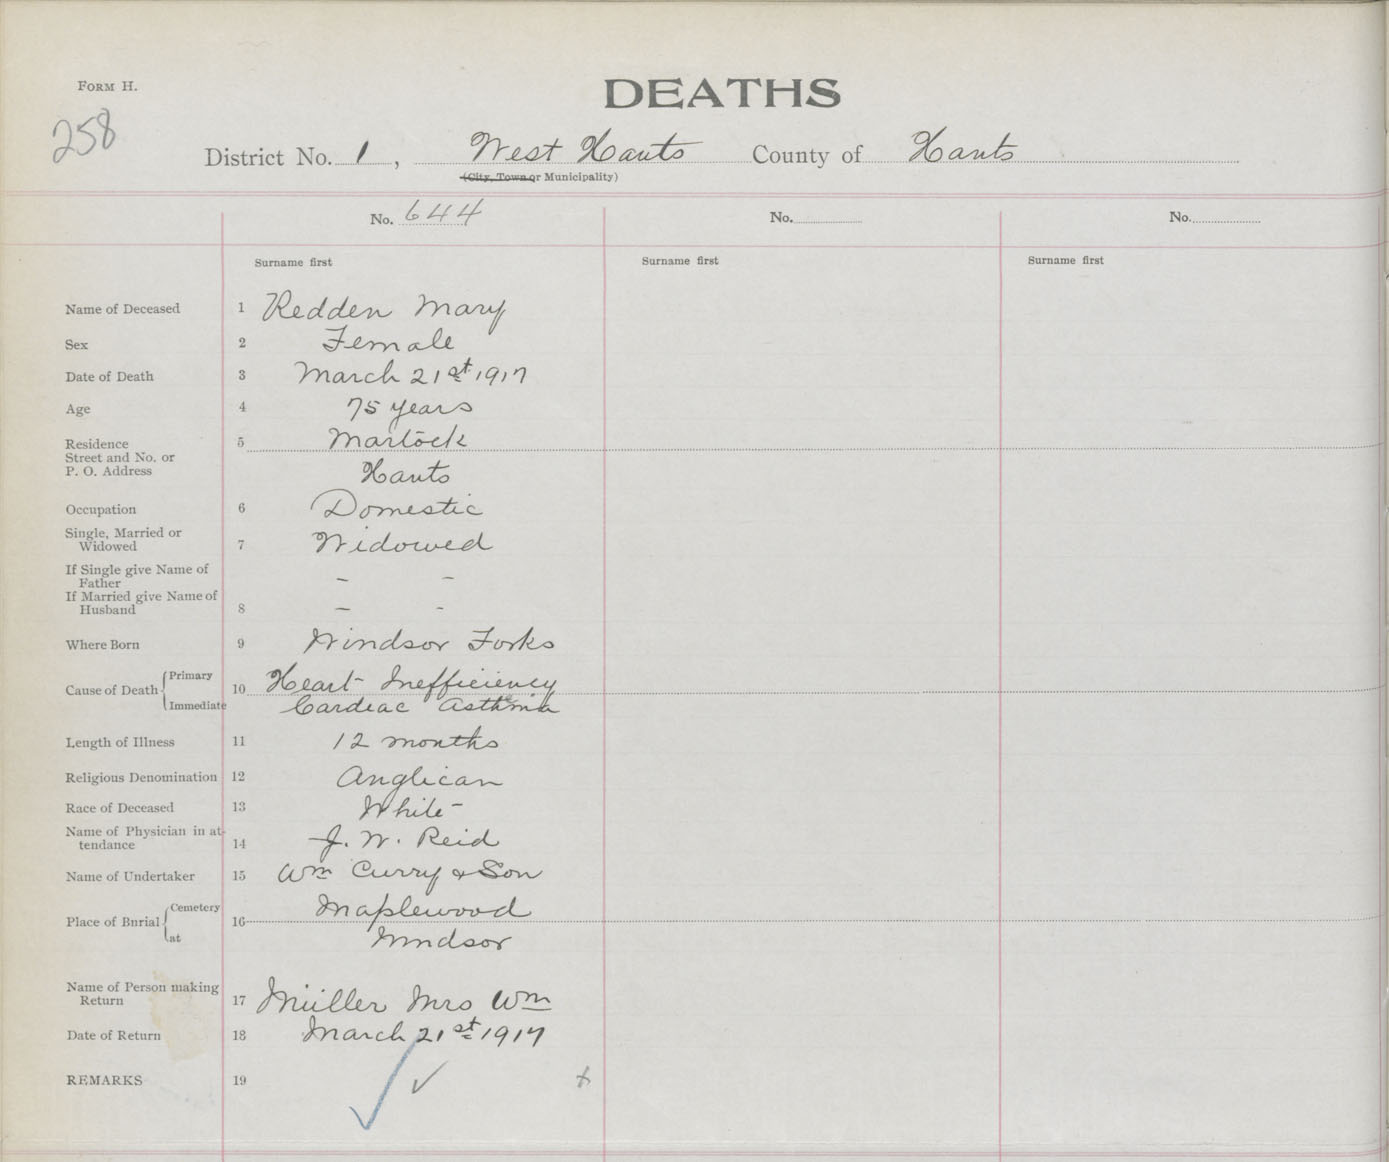 FORM H.
DEATHS
258
District No. 1, West Hants County of Hants
(City, Town or Municipality)
No. 644 No. No.
Surname first Surname first Surname first
Name of Deceased 1 Redden Mary
Sex 2 Female
Date of Death 3 March 21st 1917
Age 4 75 years
Residence 5 Martock
Street and No. or
P. O. Address Hants
Occupation 6 Domestic
Single, Married or
Widowed 7 Widowed
If Single give Name of
Father – –
If Married give Name of
Husband 8 – -
Where Born 9 Windsor Forks
Cause of Death Primary 10 Heart Inefficiency
Immediate Cardiac Asthma
Length of Illness 11 12 months
Religious Denomination 12 Anglican
Race of Deceased 13 White
Name of Physician in at-
tendance 14 J. W. Reid
Name of Undertaker 15 Wm Curry & Son
Place of Burial Cemetery 16 Maplewood
at Windsor
Name of Person making
Return 17 Müller Mrs Wm
Date of Return 18 March 21st 1917
REMARKS 19